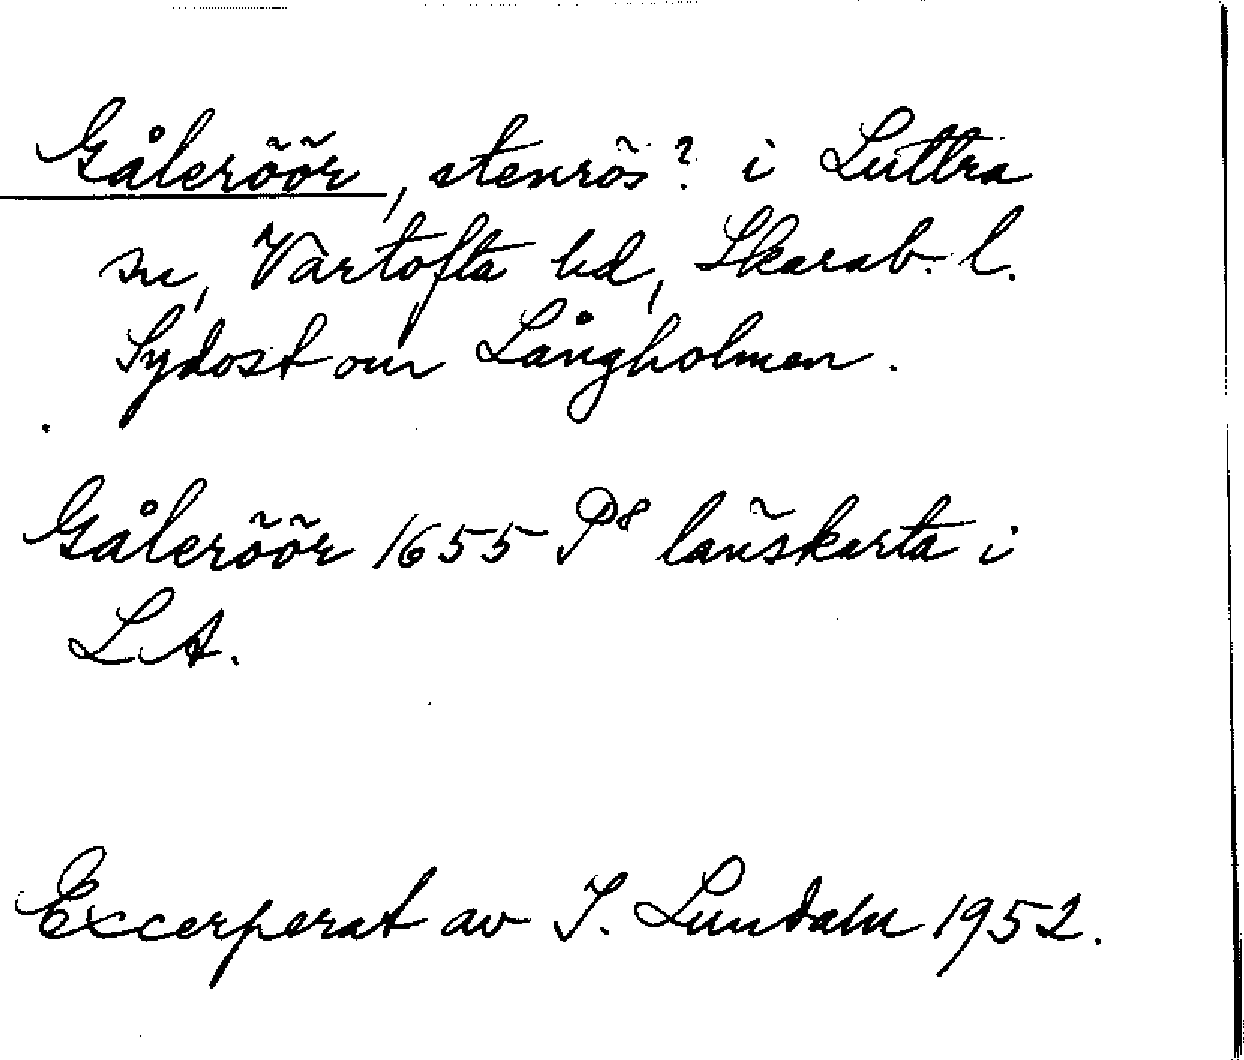 Gåleröör, stenrös? i Luttra
sn, Vartofta hd, Skarab. l.
Sydost om Långholmen.
Gåleröör 1655 P8 länskarta i
LA.
Excerperat av I. Lundahl 1952.